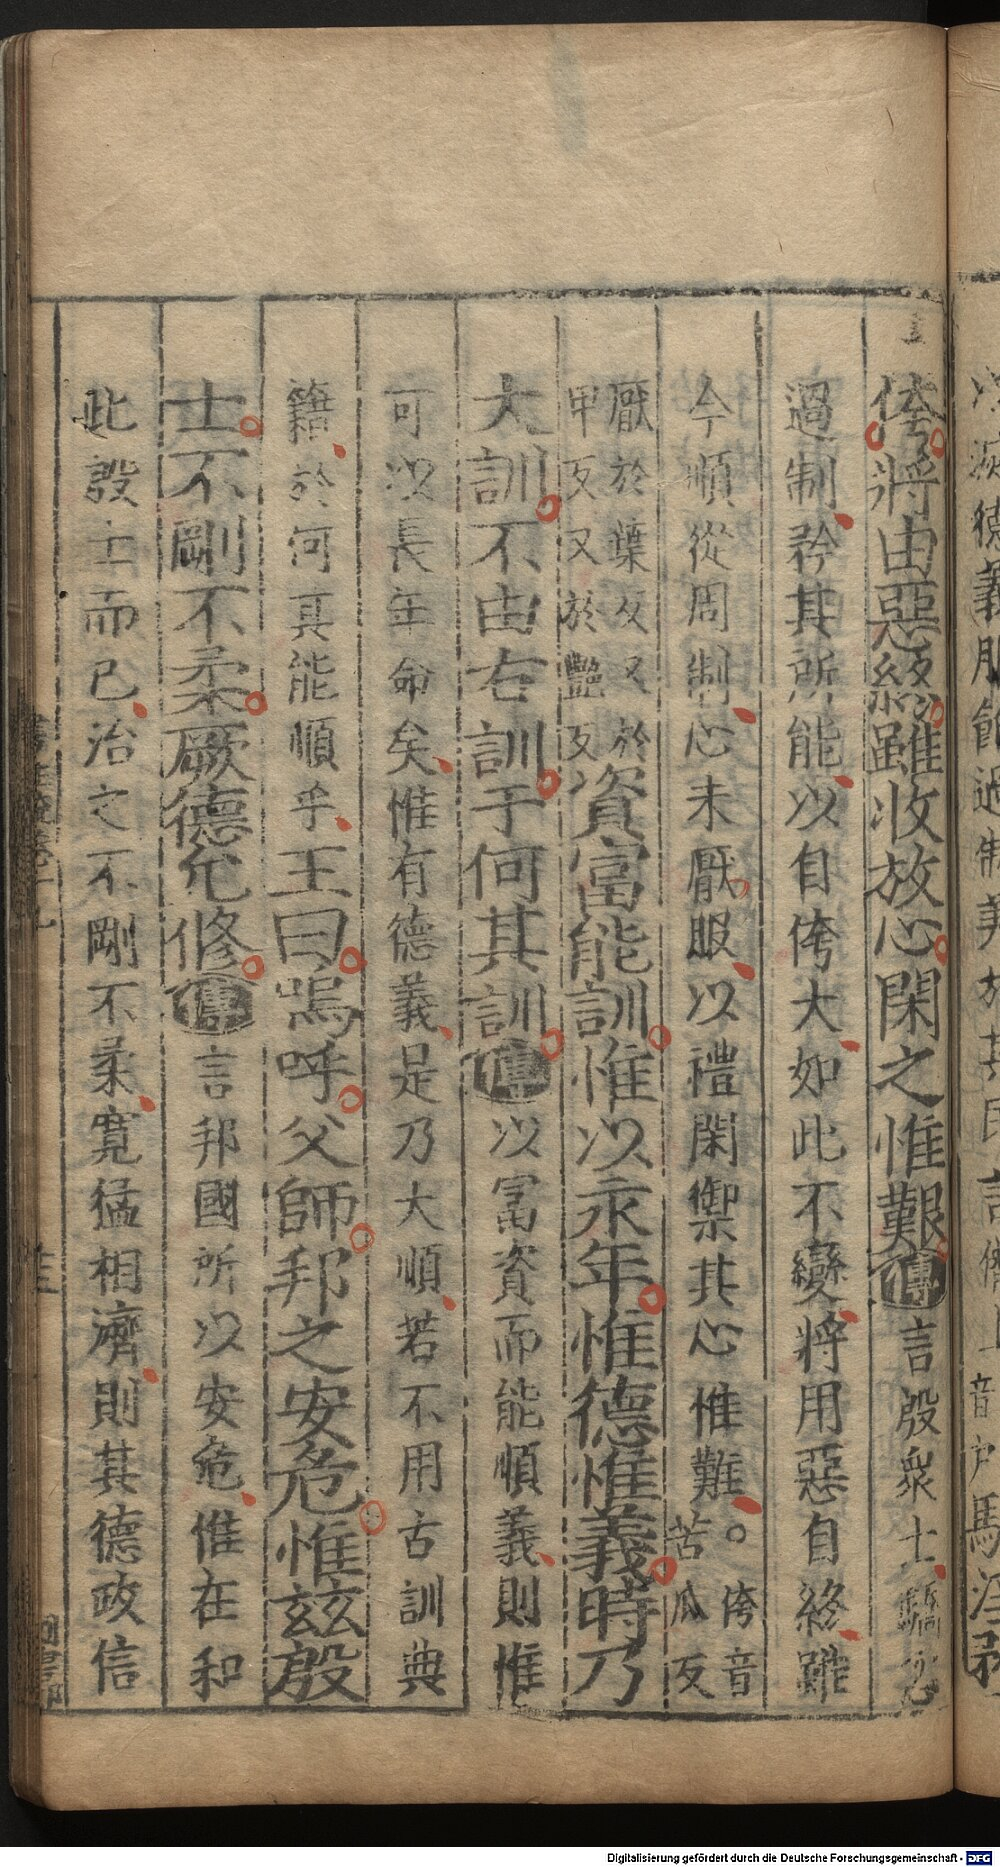 侉將由惡終雖收放心閑之惟艱傳言殷衆士驕恣
過制矜其所能以自侉大如此不變將用惡自終雖
今順從周制心未厭服以禮閑禦其心惟難○侉音苦瓜反
厭於葉反又於甲反又於艷反資富能訓惟以永年惟德惟義時乃
大訓不由古訓于何其訓傳以富資而能順義則惟
可以長年命矣惟有德義是乃大順若不用古訓典
籍於何其能順乎王曰嗚呼父師邦之安危惟茲殷
士不剛不柔厥德允修傳言邦國所以安危惟在和
此設士而已治之不剛不柔寬猛相濟則其德政信
Digitalisierung gefördert durch die Deutsche Forschungsgemeinschaft - DFG